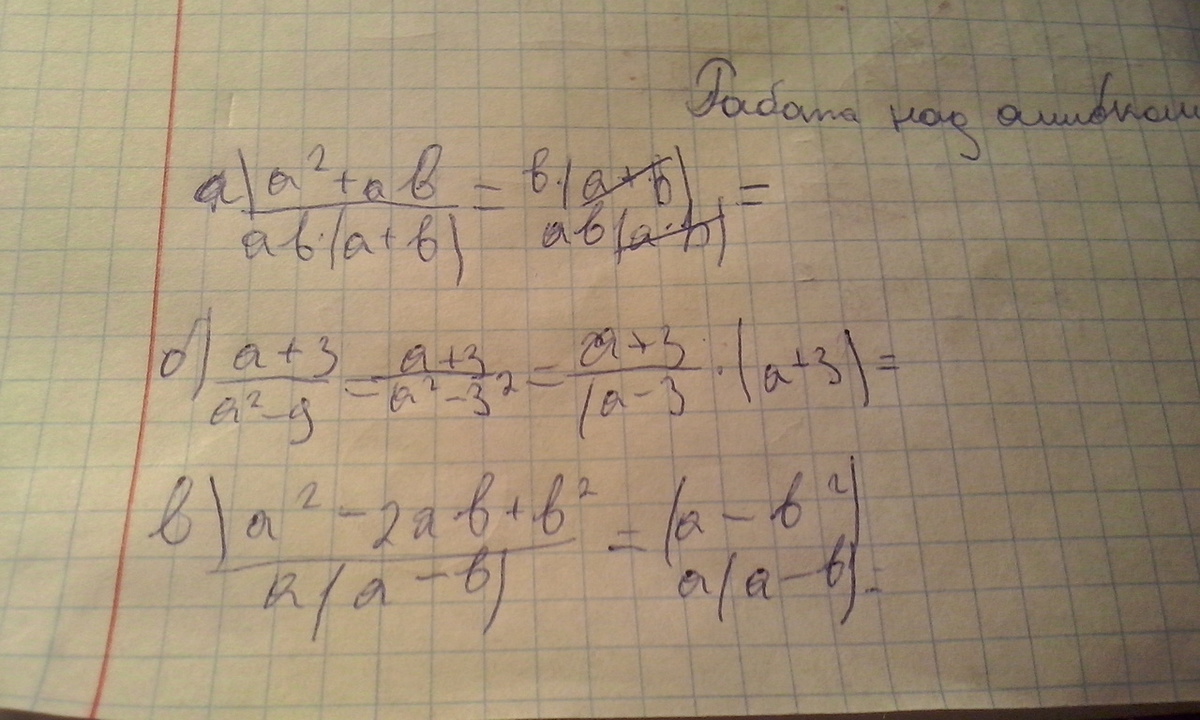 Работа над ошибкам
а) a²+ab / ab·(a+b) = b·(a+b) / ab(a+b) =
б) a+3 / a²-9 = a+3 / a²-3² = a+3 / (a-3 · (a+3) =
в) a²-2ab+b² / a(a-b) = (a-b²) / a(a-b) =